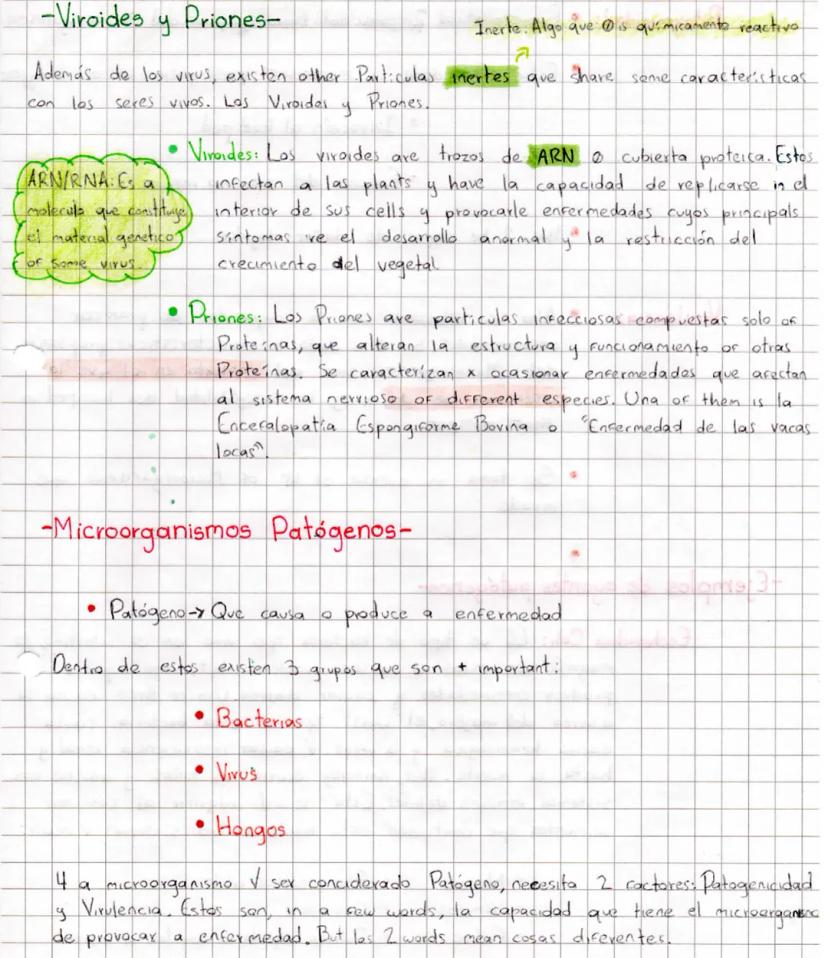 -Viroides y Priones-
Inerte. Algo que Ø is químicamente reactivo
Además de los virus, existen other Partículas inertes que share some características
con los seres vivos. Los Viroides y Priones.
• Viroides: Los viroides are trozos de ARN Ø cubierta proteica. Estos
infectan a las plants y have la capacidad de replicarse in el
interior de sus cells y provocarle enfermedades cuyos principals
síntomas re el desarrollo anormal y la restricción del
crecimiento del vegetal.
ARN/RNA: Es a
molecula que constituye
el material genético
of some virus.
• Priones: Los Priones are partículas infecciosas compuestas solo of
Proteínas, que alteran la estructura y funcionamiento of otras
Proteínas. Se caracterizan x ocasionar enfermedades que afectan
al sistema nervioso of different especies. Una of them is la
Encefalopatía Espongiforme Bovina o "Enfermedad de las vacas
locas".
-Microorganismos Patógenos-
• Patógeno → Que causa o produce a enfermedad
Dentro de estos existen 3 grupos que son + important:
• Bacterias
• Virus
• Hongos
4 a microorganismo √ ser conciderado Patógeno, necesita 2 factores: Patogenicidad
y Virulencia. Estos son, in a few words, la capacidad que tiene el microorganismo
de provocar a enfermedad. But los 2 words mean cosas diferentes.